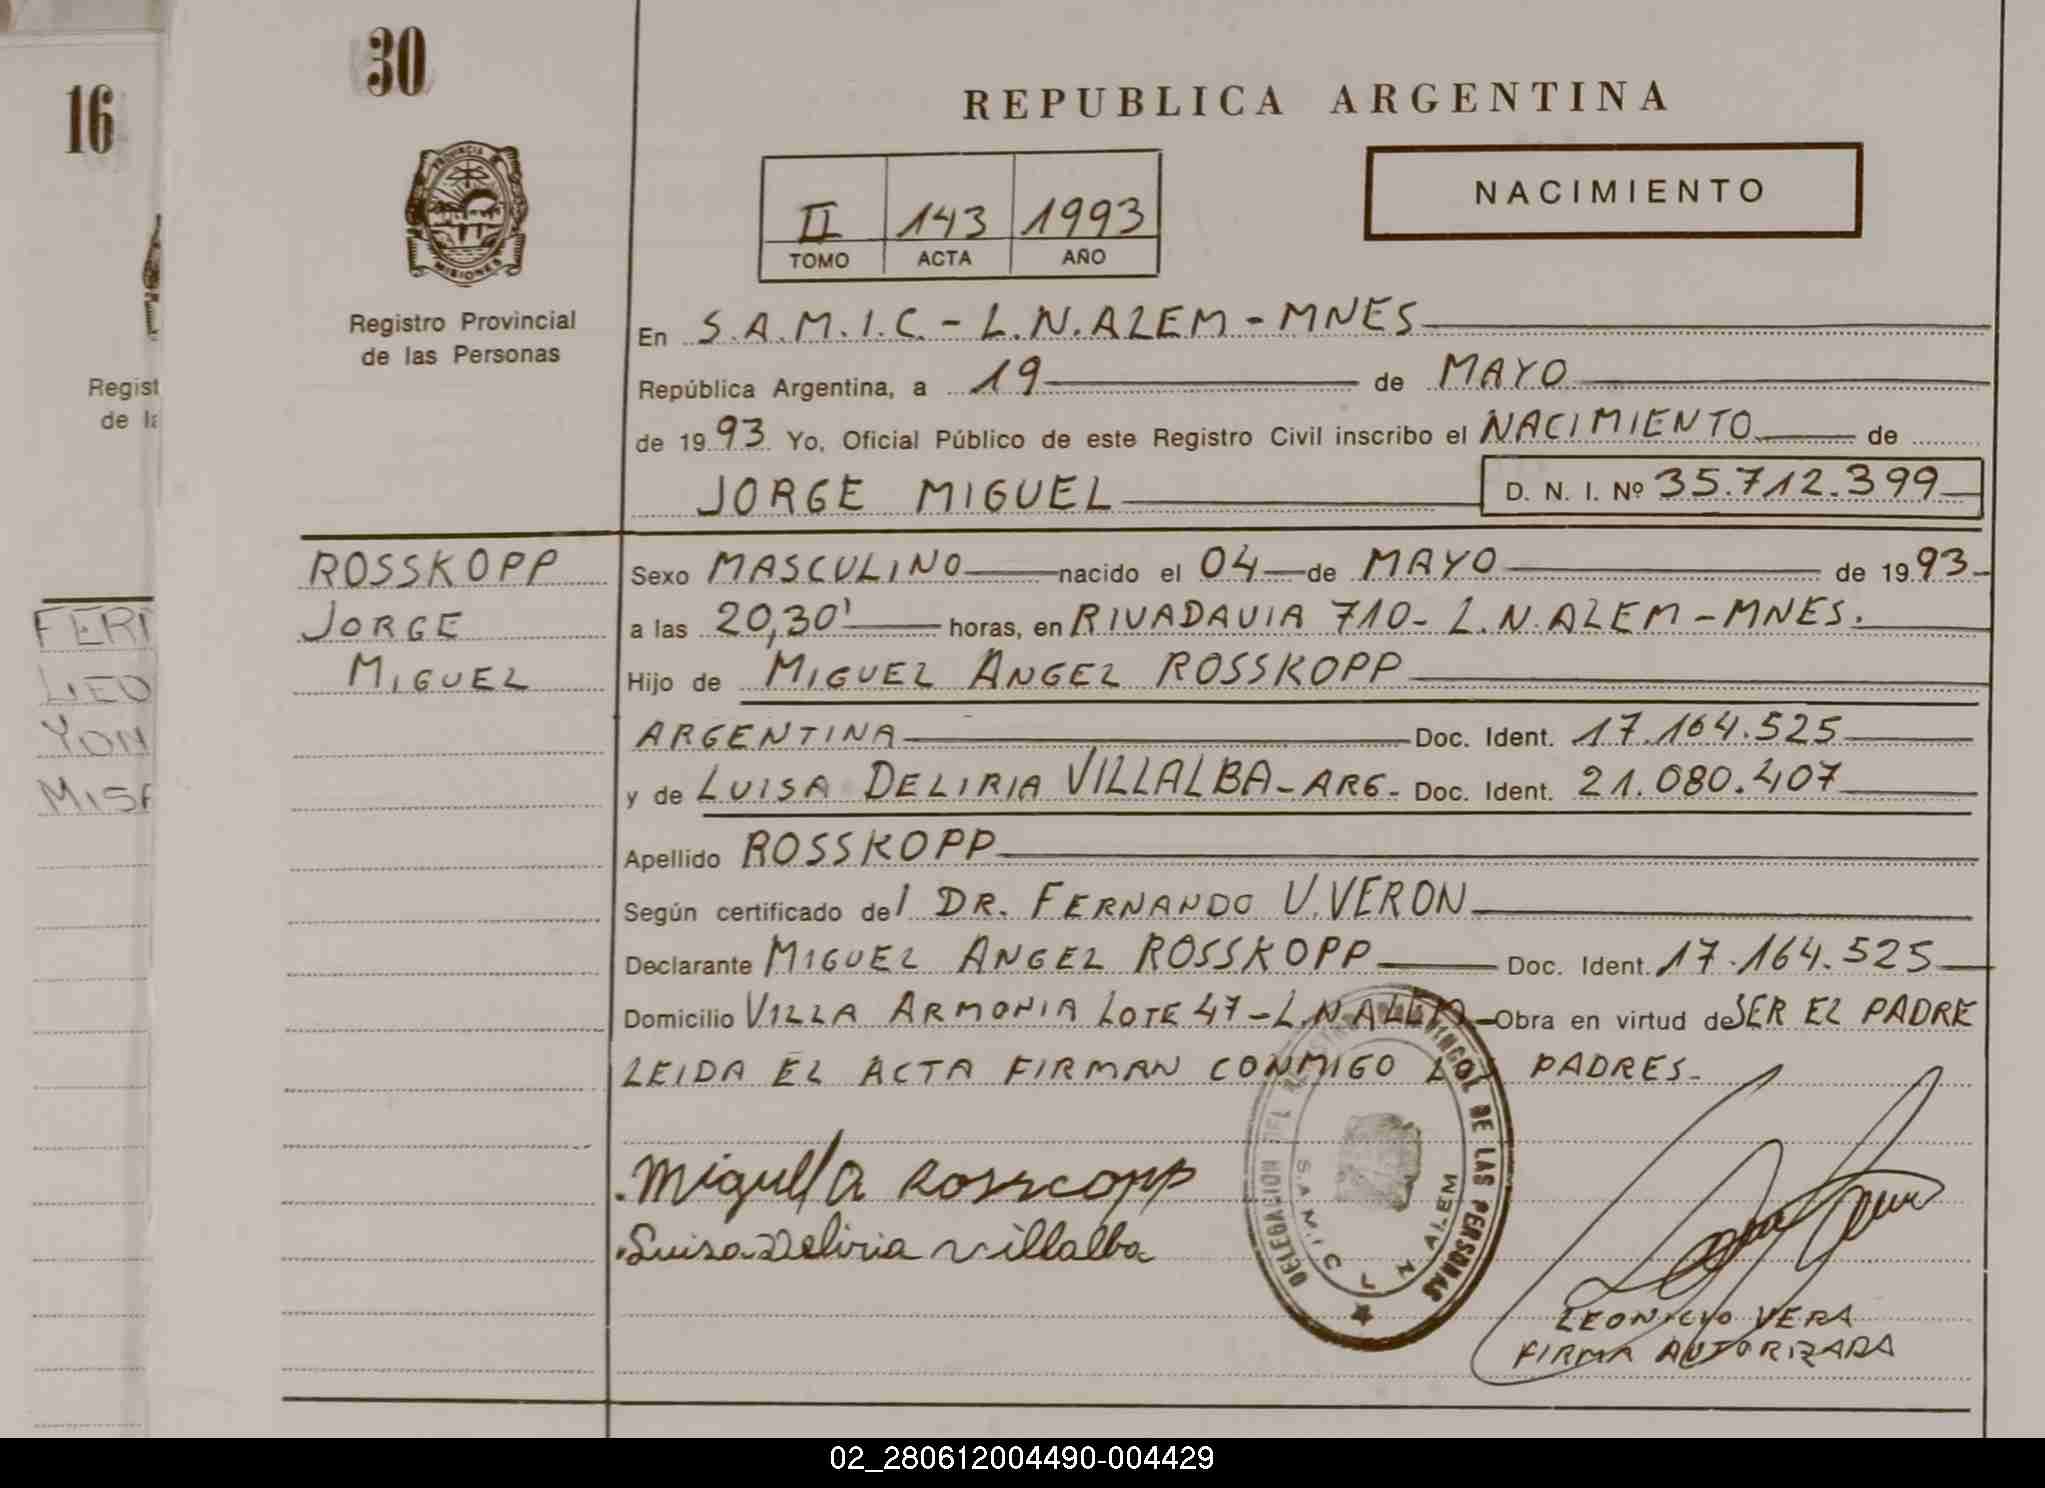 16
Regist
de la
FER
LEO
YON
MISA
30
PROVINCIA DE
MISIONES
Registro Provincial
de las Personas
ROSSKOPP
JORGE
MIGUEL
REPUBLICA ARGENTINA
NACIMIENTO
II 143 1993
TOMO ACTA AÑO
En S.A.M.I.C. - L.N.ALEM - MNES
República Argentina, a 19 de MAYO
de 1993 Yo, Oficial Público de este Registro Civil inscribo el NACIMIENTO de
JORGE MIGUEL D. N. I. Nº 35.712.399
Sexo MASCULINO nacido el 04 de MAYO de 1993
a las 20,30' horas, en RIVADAVIA 710 - L.N.ALEM - MNES.
Hijo de MIGUEL ANGEL ROSSKOPP
ARGENTINA Doc. Ident. 17.164.525
y de LUISA DELIRIA VILLALBA - ARG - Doc. Ident. 21.080.407
Apellido ROSSKOPP
Según certificado del DR. FERNANDO V. VERON
Declarante MIGUEL ANGEL ROSSKOPP Doc. Ident. 17.164.525
Domicilio VILLA ARMONIA LOTE 47 - L.N.ALEM - Obra en virtud de SER EL PADRE
LEIDA EL ACTA FIRMAN CONMIGO LOS PADRES -
Miguel A Rosscopp
Luisa Deliria Villalba
DELEGACION DEL REGISTRO PROVINCIAL DE LAS PERSONAS
S.A.M.I.C. L N ALEM
LEONICIO VERA
FIRMA AUTORIZADA
02_280612004490-004429